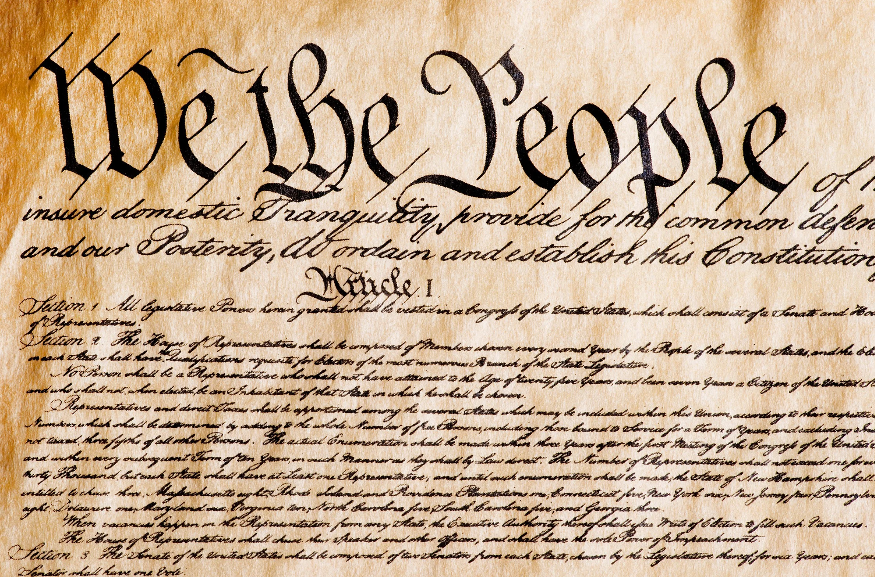 We the People of
insure domestic Tranquility, provide for the common defen
and our Posterity, do ordain and establish this Constitution
Article I
Section 1 All legislative Powers herein granted shall be vested in a Congress of the United States, which shall consist of a Senate and Ho
of Representatives.
Section 2 The House of Representatives shall be composed of Members chosen every second Year by the People of the several States, and the El
in each State shall have Qualifications requisite for Electors of the most numerous Branch of the State Legislature.
No Person shall be a Representative who shall not have attained to the Age of twenty five Years, and been seven Years a Citizen of the United St
and who shall not, when elected, be an Inhabitant of that State in which he shall be chosen.
Representatives and direct Taxes shall be apportioned among the several States which may be included within this Union, according to their respective
Numbers, which shall be determined by adding to the whole Number of free Persons, including those bound to Service for a Term of Years, and excluding In
not taxed, three fifths of all other Persons. The actual Enumeration shall be made within three Years after the first Meeting of the Congress of the United
and within every subsequent Term of ten Years, in such Manner as they shall by Law direct. The Number of Representatives shall not exceed one for ev
thirty Thousand, but each State shall have at Least one Representative; and until such enumeration shall be made, the State of New Hampshire shall
entitled to chuse three, Massachusetts eight, Rhode Island and Providence Plantations one, Connecticut five, New York six, New Jersey four, Pennsylvan
eight, Delaware one, Maryland six, Virginia ten, North Carolina five, South Carolina five, and Georgia three.
When vacancies happen in the Representation from any State, the Executive Authority thereof shall issue Writs of Election to fill such Vacancies.
The House of Representatives shall chuse their Speaker and other Officers; and shall have the sole Power of Impeachment.
Section 3 The Senate of the United States shall be composed of two Senators from each State, chosen by the Legislature thereof, for six Years; and ea
Senator shall have one Vote.